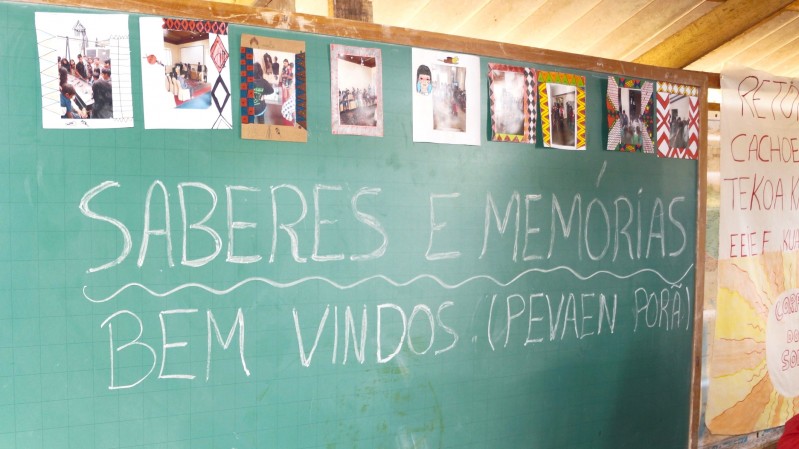 SABERES E MEMÓRIAS
BEM VINDOS. (PEVAEN PORÃ)
RETO
CACHOE
TEKOA
EEIEF
DO